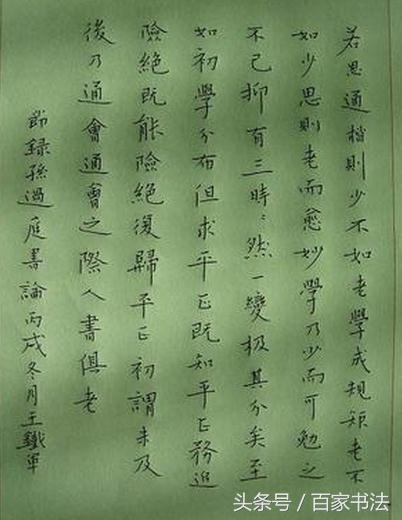 若思通楷则少不如老學成規矩老不
如少思則老而愈妙學乃少而可勉之
不已抑有三時〻然一變极其分矣至
如初學分布但求平正既知平正務追
險絕既能險絕復歸平正初謂未及
後乃通會通會之際人書俱老
節録孫過庭書論丙戌冬月王鐵軍
头条号／百家书法